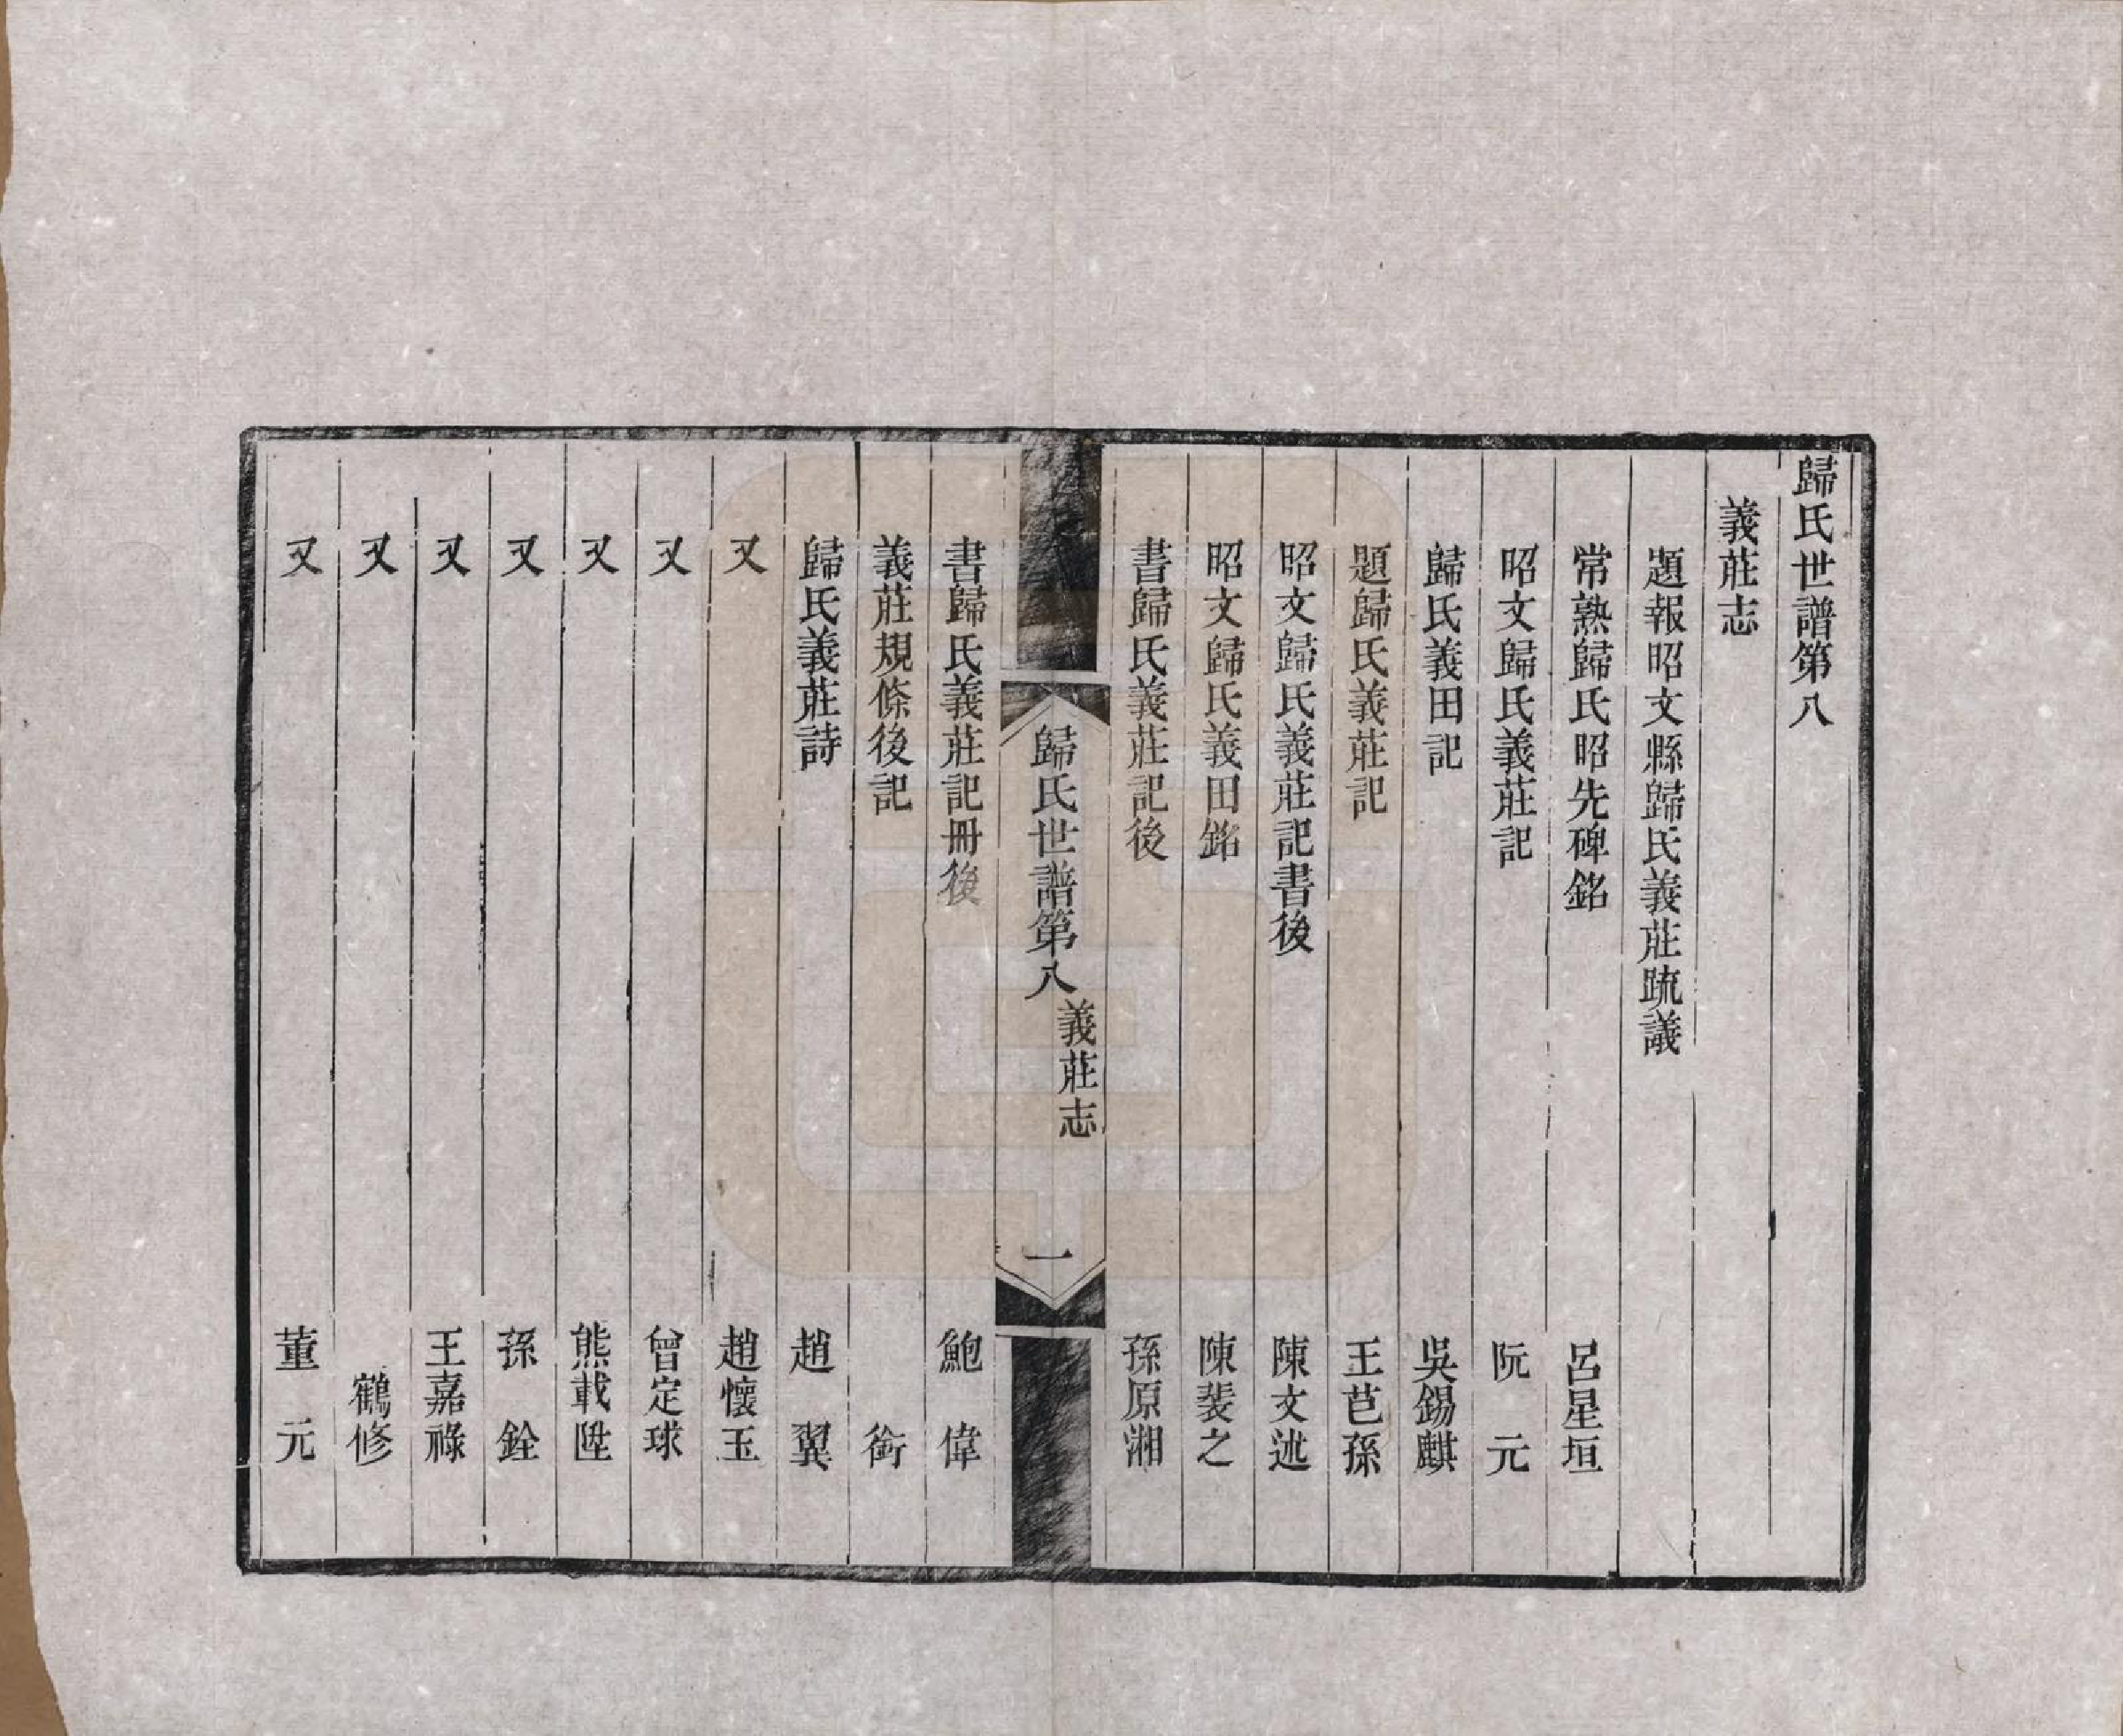 歸氏世譜第八
義莊志
題報昭文縣歸氏義莊疏議
常熟歸氏昭先碑銘 呂星垣
昭文歸氏義莊記 阮元
歸氏義田記 吳錫麒
題歸氏義莊記 王芑孫
昭文歸氏義莊記書後 陳文述
昭文歸氏義田銘 陳裴之
書歸氏義莊記後 孫原湘
歸氏世譜第八 義莊志 一
書歸氏義莊記冊後 鮑偉
義莊規條後記 銜
歸氏義莊詩 趙翼
又 趙懷玉
又 曾定球
又 熊載陞
又 孫銓
又 王嘉祿
又 鶴修
又 董元